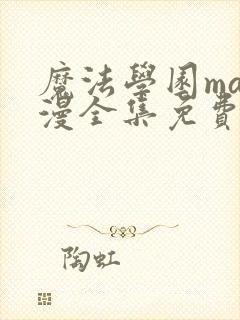 魔法學園ma
漫全集免費
陶虹